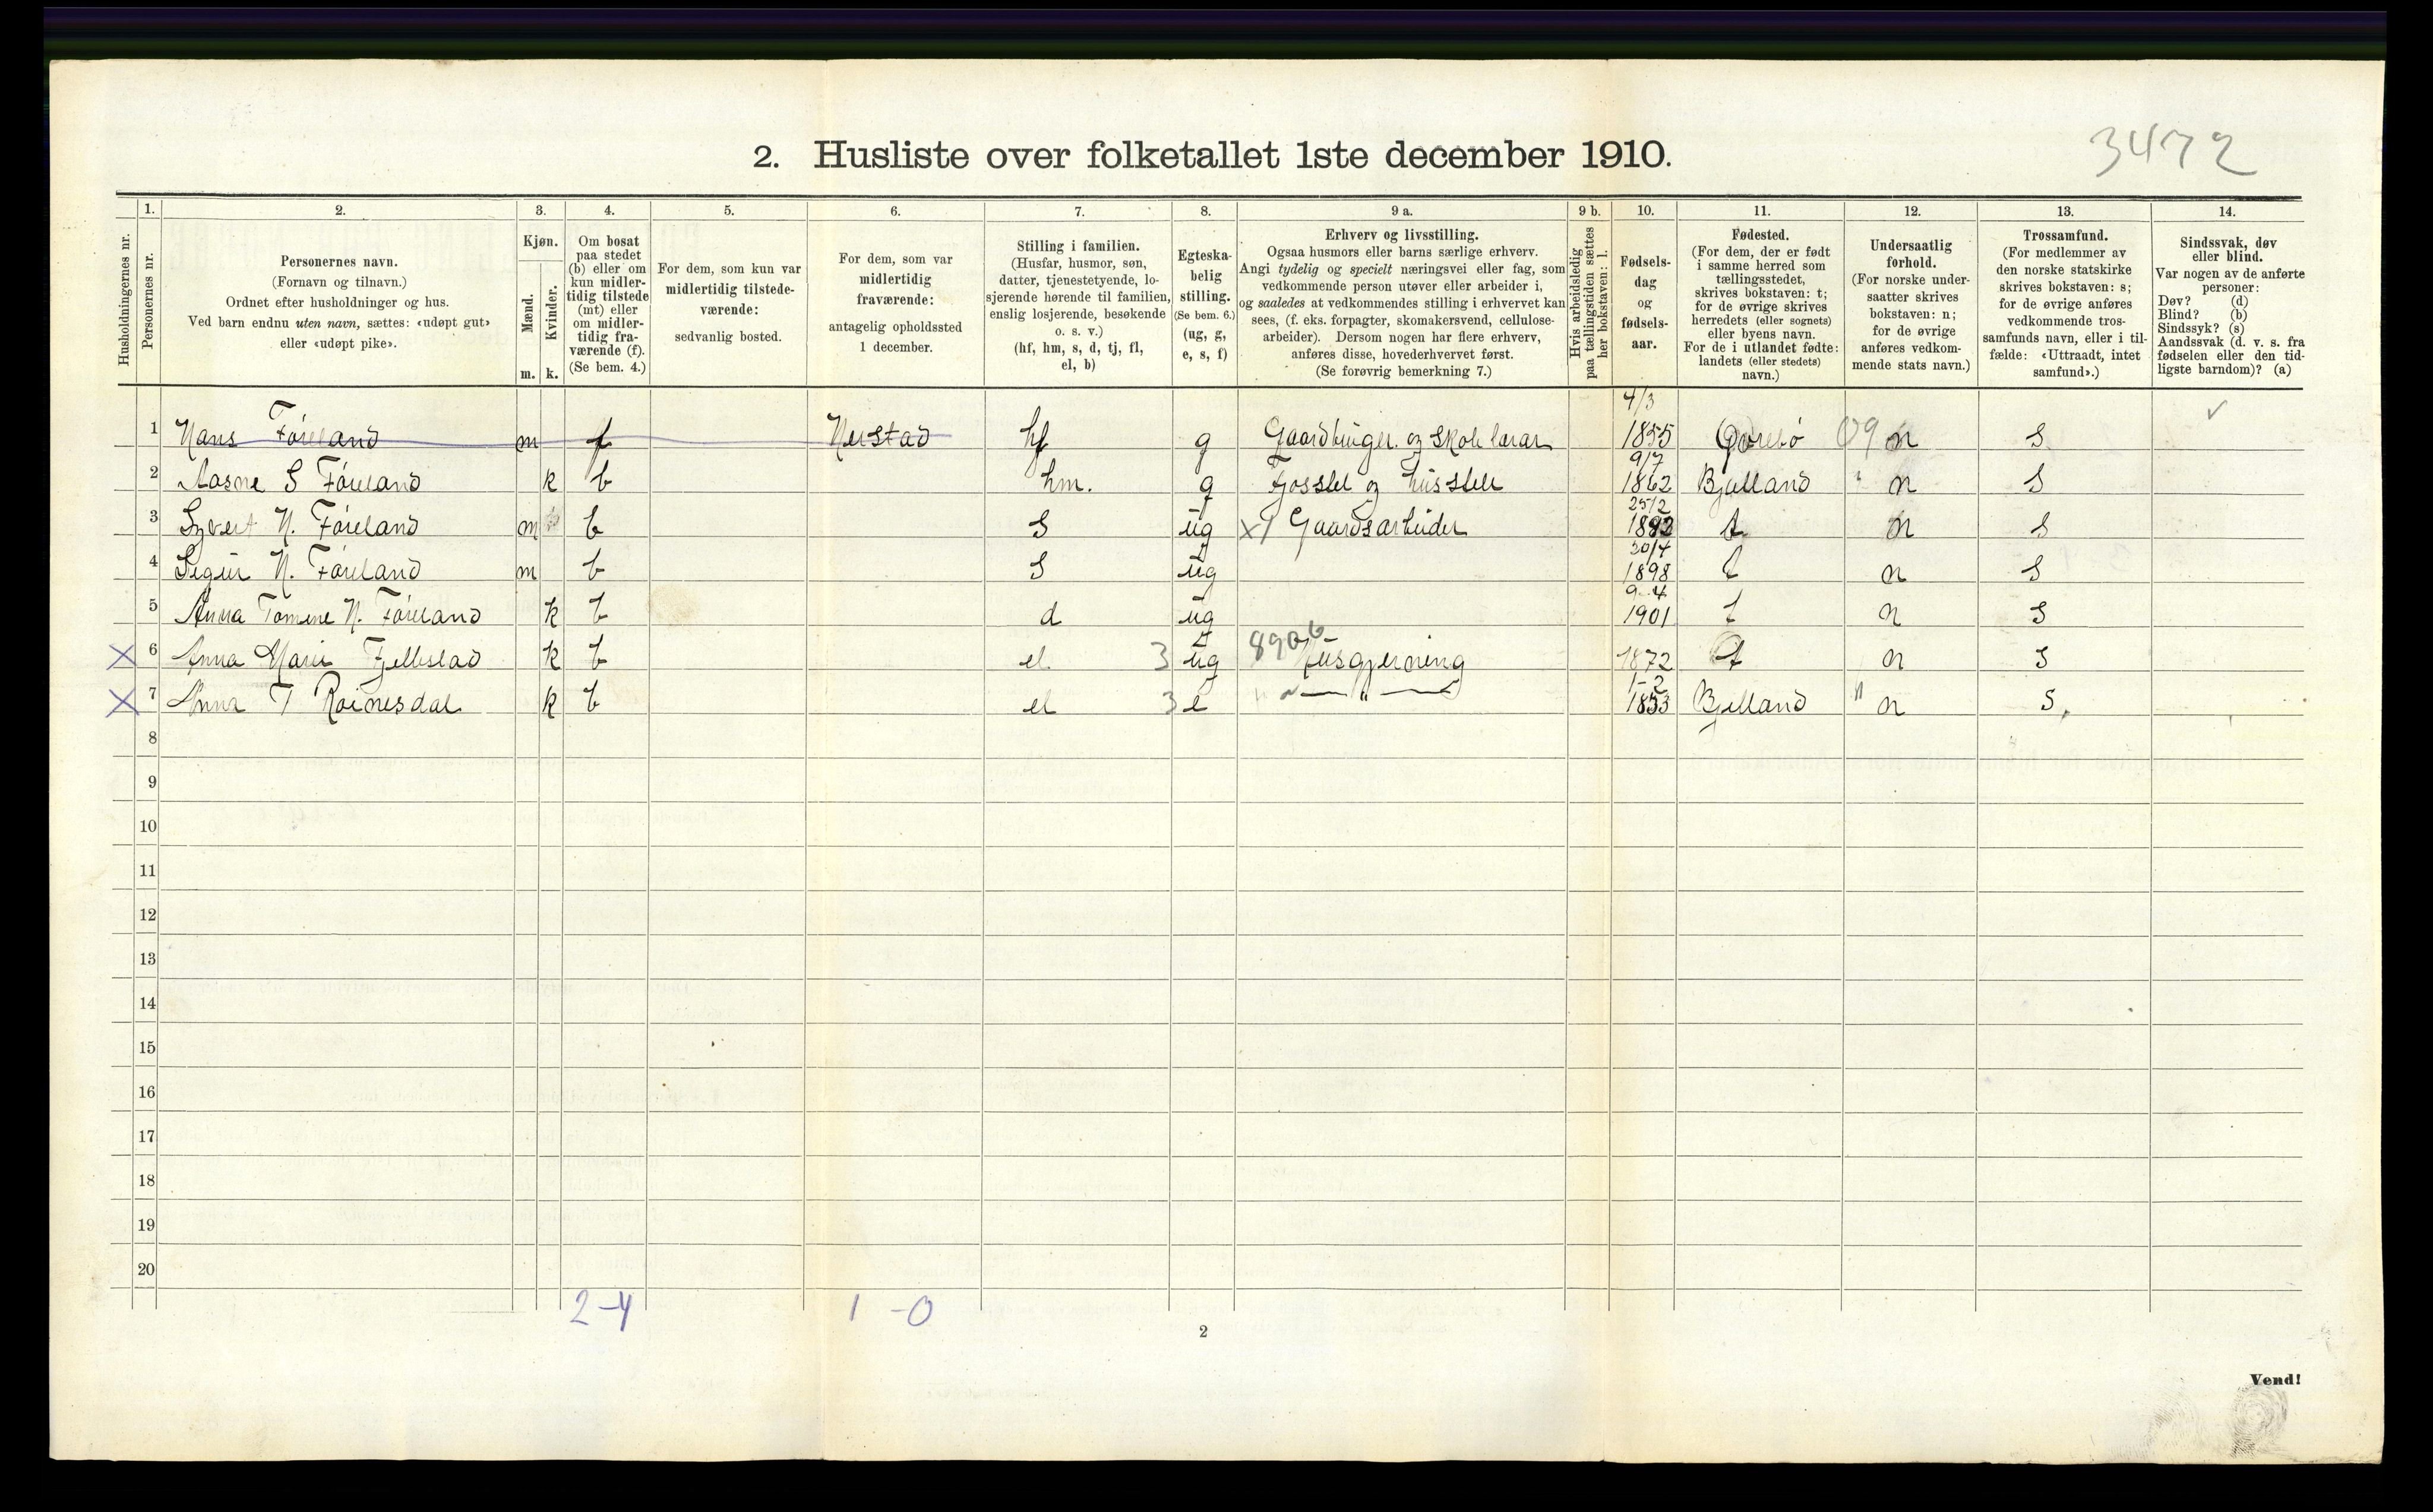 3472
2. Husliste over folketallet 1ste december 1910.
1. 2. 3. 4. 5. 6. 7. 8. 9 a. 9 b. 10. 11. 12. 13. 14.
Husholdningernes nr.
Personernes nr.
Personernes navn.
(Fornavn og tilnavn.)
Ordnet efter husholdninger og hus.
Ved barn endnu uten navn, sættes: «udøpt gut»
eller «udøpt pike».
Kjøn.
Mænd.
Kvinder.
m. k.
Om bosat
paa stedet
(b) eller om
kun midler-
tidig tilstede
(mt) eller
om midler-
tidig fra-
værende (f).
(Se bem. 4.)
For dem, som kun var
midlertidig tilstede-
værende:
sedvanlig bosted.
For dem, som var
midlertidig
fraværende:
antagelig opholdssted
1 december.
Stilling i familien.
(Husfar, husmor, søn,
datter, tjenestetyende, lo-
sjerende hørende til familien,
enslig losjerende, besøkende
o. s. v.)
(hf, hm, s, d, tj, fl,
el, b)
Egteska-
belig
stilling.
(Se bem. 6.)
(ug, g,
e, s, f)
Erhverv og livsstilling.
Ogsaa husmors eller barns særlige erhverv.
Angi tydelig og specielt næringsvei eller fag, som
vedkommende person utøver eller arbeider i,
og saaledes at vedkommendes stilling i erhvervet kan
sees, (f. eks. forpagter, skomakersvend, cellulose-
arbeider). Dersom nogen har flere erhverv,
anføres disse, hovederhvervet først.
(Se forøvrig bemerkning 7.)
Hvis arbeidsledig
paa tællingstiden sættes
her bokstaven: l.
Fødsels-
dag
og
fødsels-
aar.
Fødested.
(For dem, der er født
i samme herred som
tællingsstedet,
skrives bokstaven: t;
for de øvrige skrives
herredets (eller sognets)
eller byens navn.
For de i utlandet fødte:
landets (eller stedets)
navn.)
Undersaatlig
forhold.
(For norske under-
saatter skrives
bokstaven: n;
for de øvrige
anføres vedkom-
mende stats navn.)
Trossamfund.
(For medlemmer av
den norske statskirke
skrives bokstaven: s;
for de øvrige anføres
vedkommende tros-
samfunds navn, eller i til-
fælde: «Uttraadt, intet
samfund».)
Sindssvak, døv
eller blind.
Var nogen av de anførte
personer:
Døv? (d)
Blind? (b)
Sindssyk? (s)
Aandssvak (d. v. s. fra
fødselen eller den tid-
ligste barndom)? (a)
4/3
1 Hans Föreland m f Nerstad hf g Gaardbruger og Skolelærar 1855 09 n S
9/7
2 Aasne S Föreland k b hm. g Fjosstel og husstell 1862 Bjelland " n S
25/2
3 Syvert H. Föreland m b S ug x1 Gaardsarbeider t n S
20/4
4 H. Föreland m b S ug 1898 t n S
9-4
5 Anna Tomine H. Föreland k b d ug 1901 t n S
X 6 Anna Marie Fjellestad k b el 3 ug Husgjerning 1872 t n S
1-2
X 7 Anna T Roinesdal k b el 3 e — " — 1853 Bjelland " n S.
8
9
10
11
12
13
14
15
16
17
18
19
20
2-4 1 -0
2
Vend!